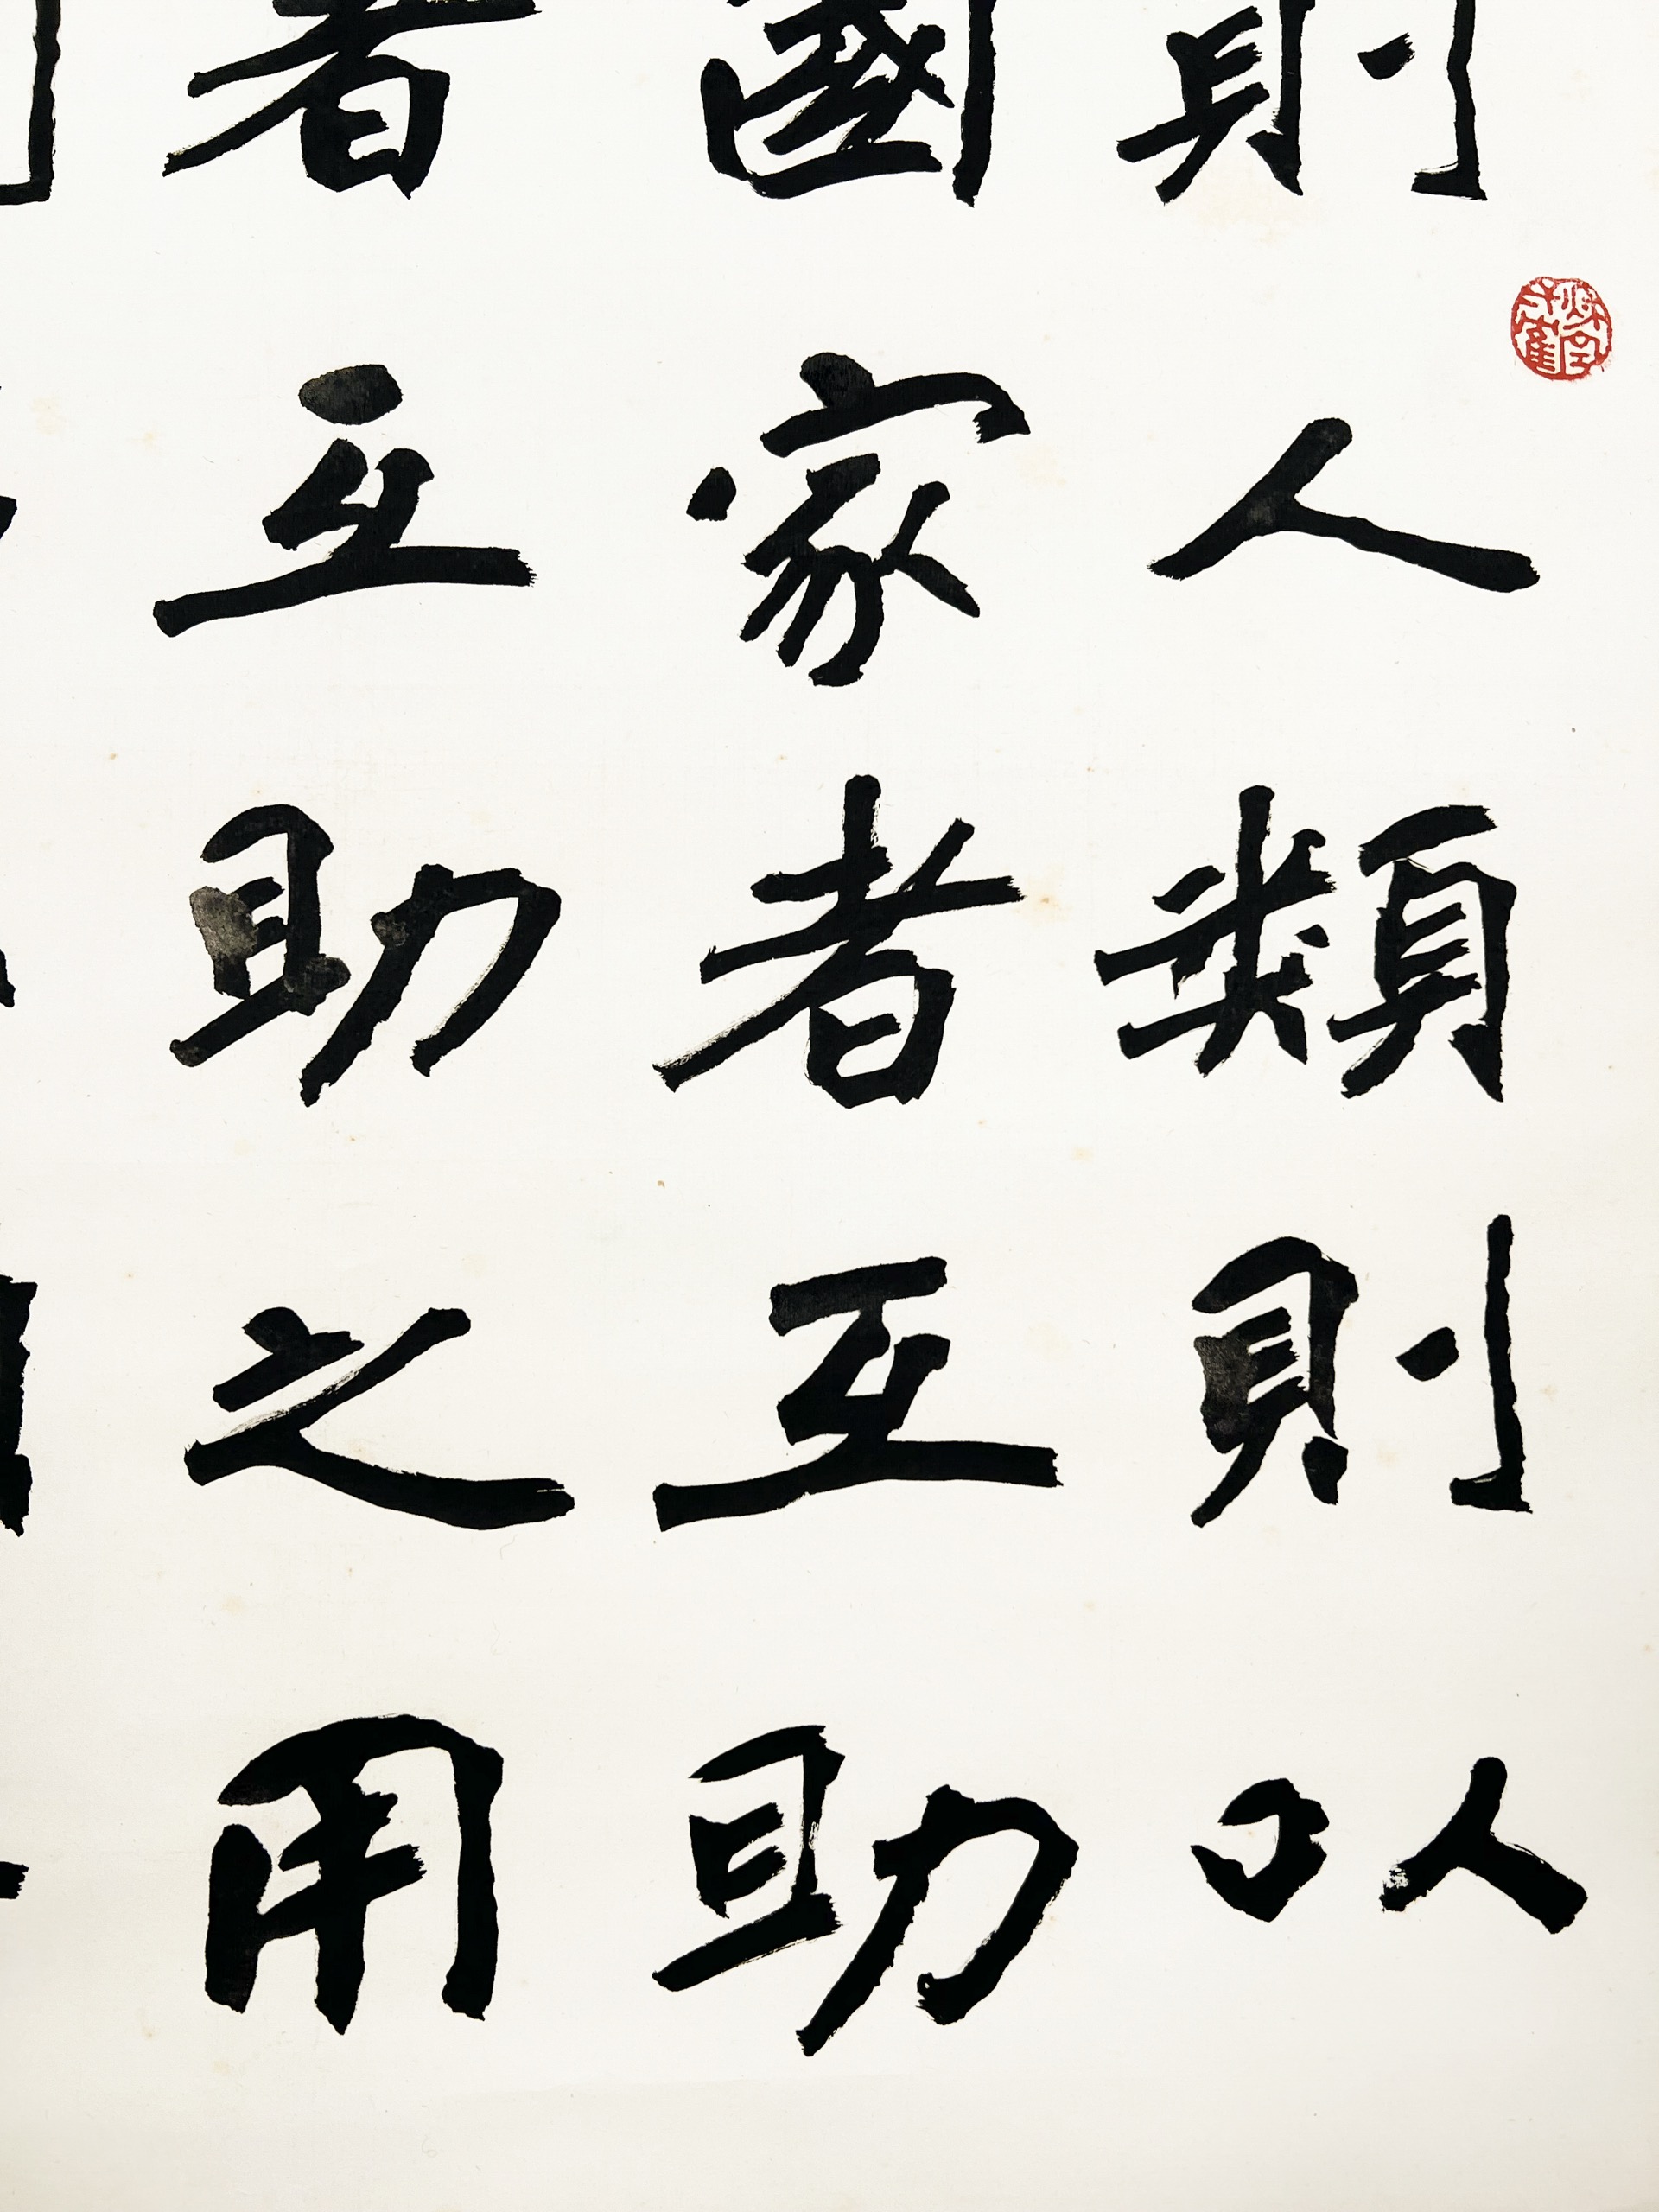 則人類則以
國家者互助
者互助之用